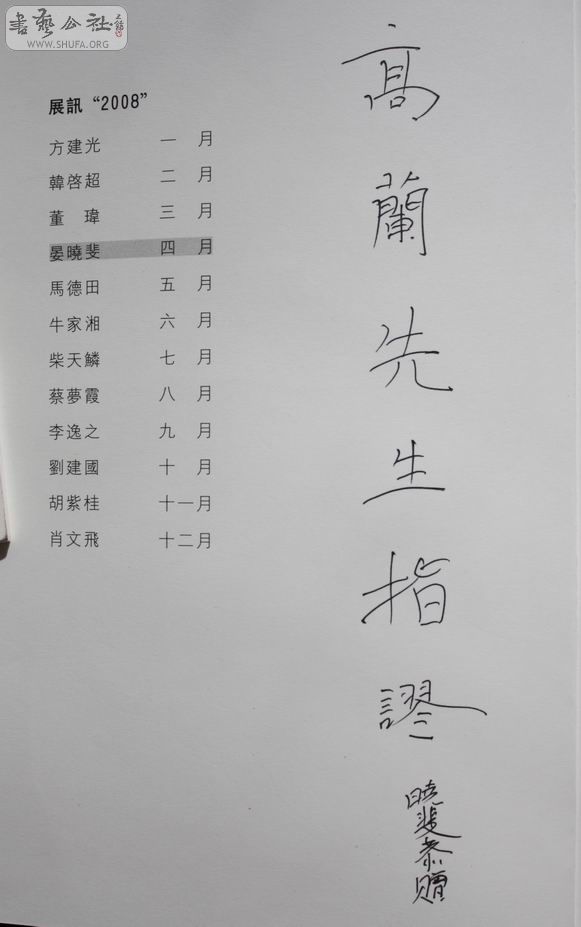 書藝公社
WWW.SHUFA.ORG
展訊“2008”
方建光 一月
韓啓超 二月
董瑋 三月
晏曉斐 四月
馬德田 五月
牛家湘 六月
柴天鱗 七月
蔡夢霞 八月
李逸之 九月
劉建國 十月
胡紫桂 十一月
肖文飛 十二月
高蘭先生指謬
曉斐恭贈